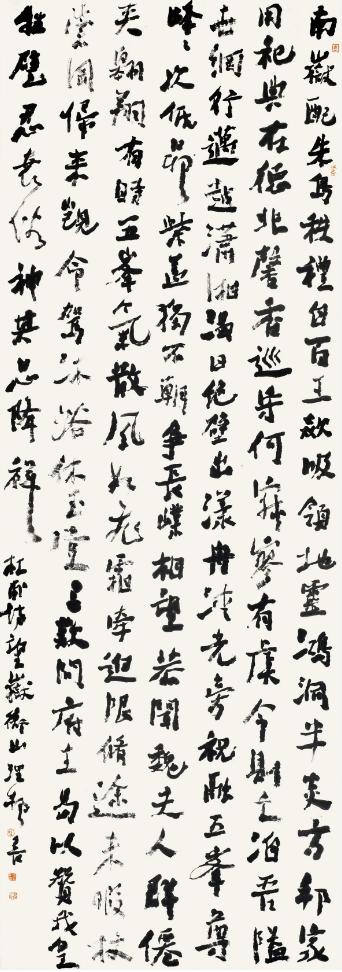 南嶽配朱鳥秩禮自百王歘吸領地靈鴻洞半炎方邦家
用祀典在德非馨香巡守何寂寥有虞今則亡洎吾隘
世網行邁越瀟湘渴日絕壁出漾舟清光旁祝融五峯尊
峰峰次低昂紫蓋獨不朝爭長嶪相望恭聞魏夫人群僊
夾翱翔有時五峯氣散風如飛霜牽迫限脩途未暇杖
崇岡歸來覬命駕沐浴休玉堂三歎問府主曷以贊我皇
牲璧忍衰俗神其思降祥
杜甫詩望嶽衡山